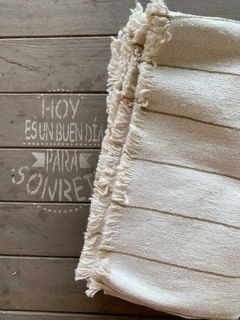 HOY
ES UN BUEN DÍA
PARA
SONRE